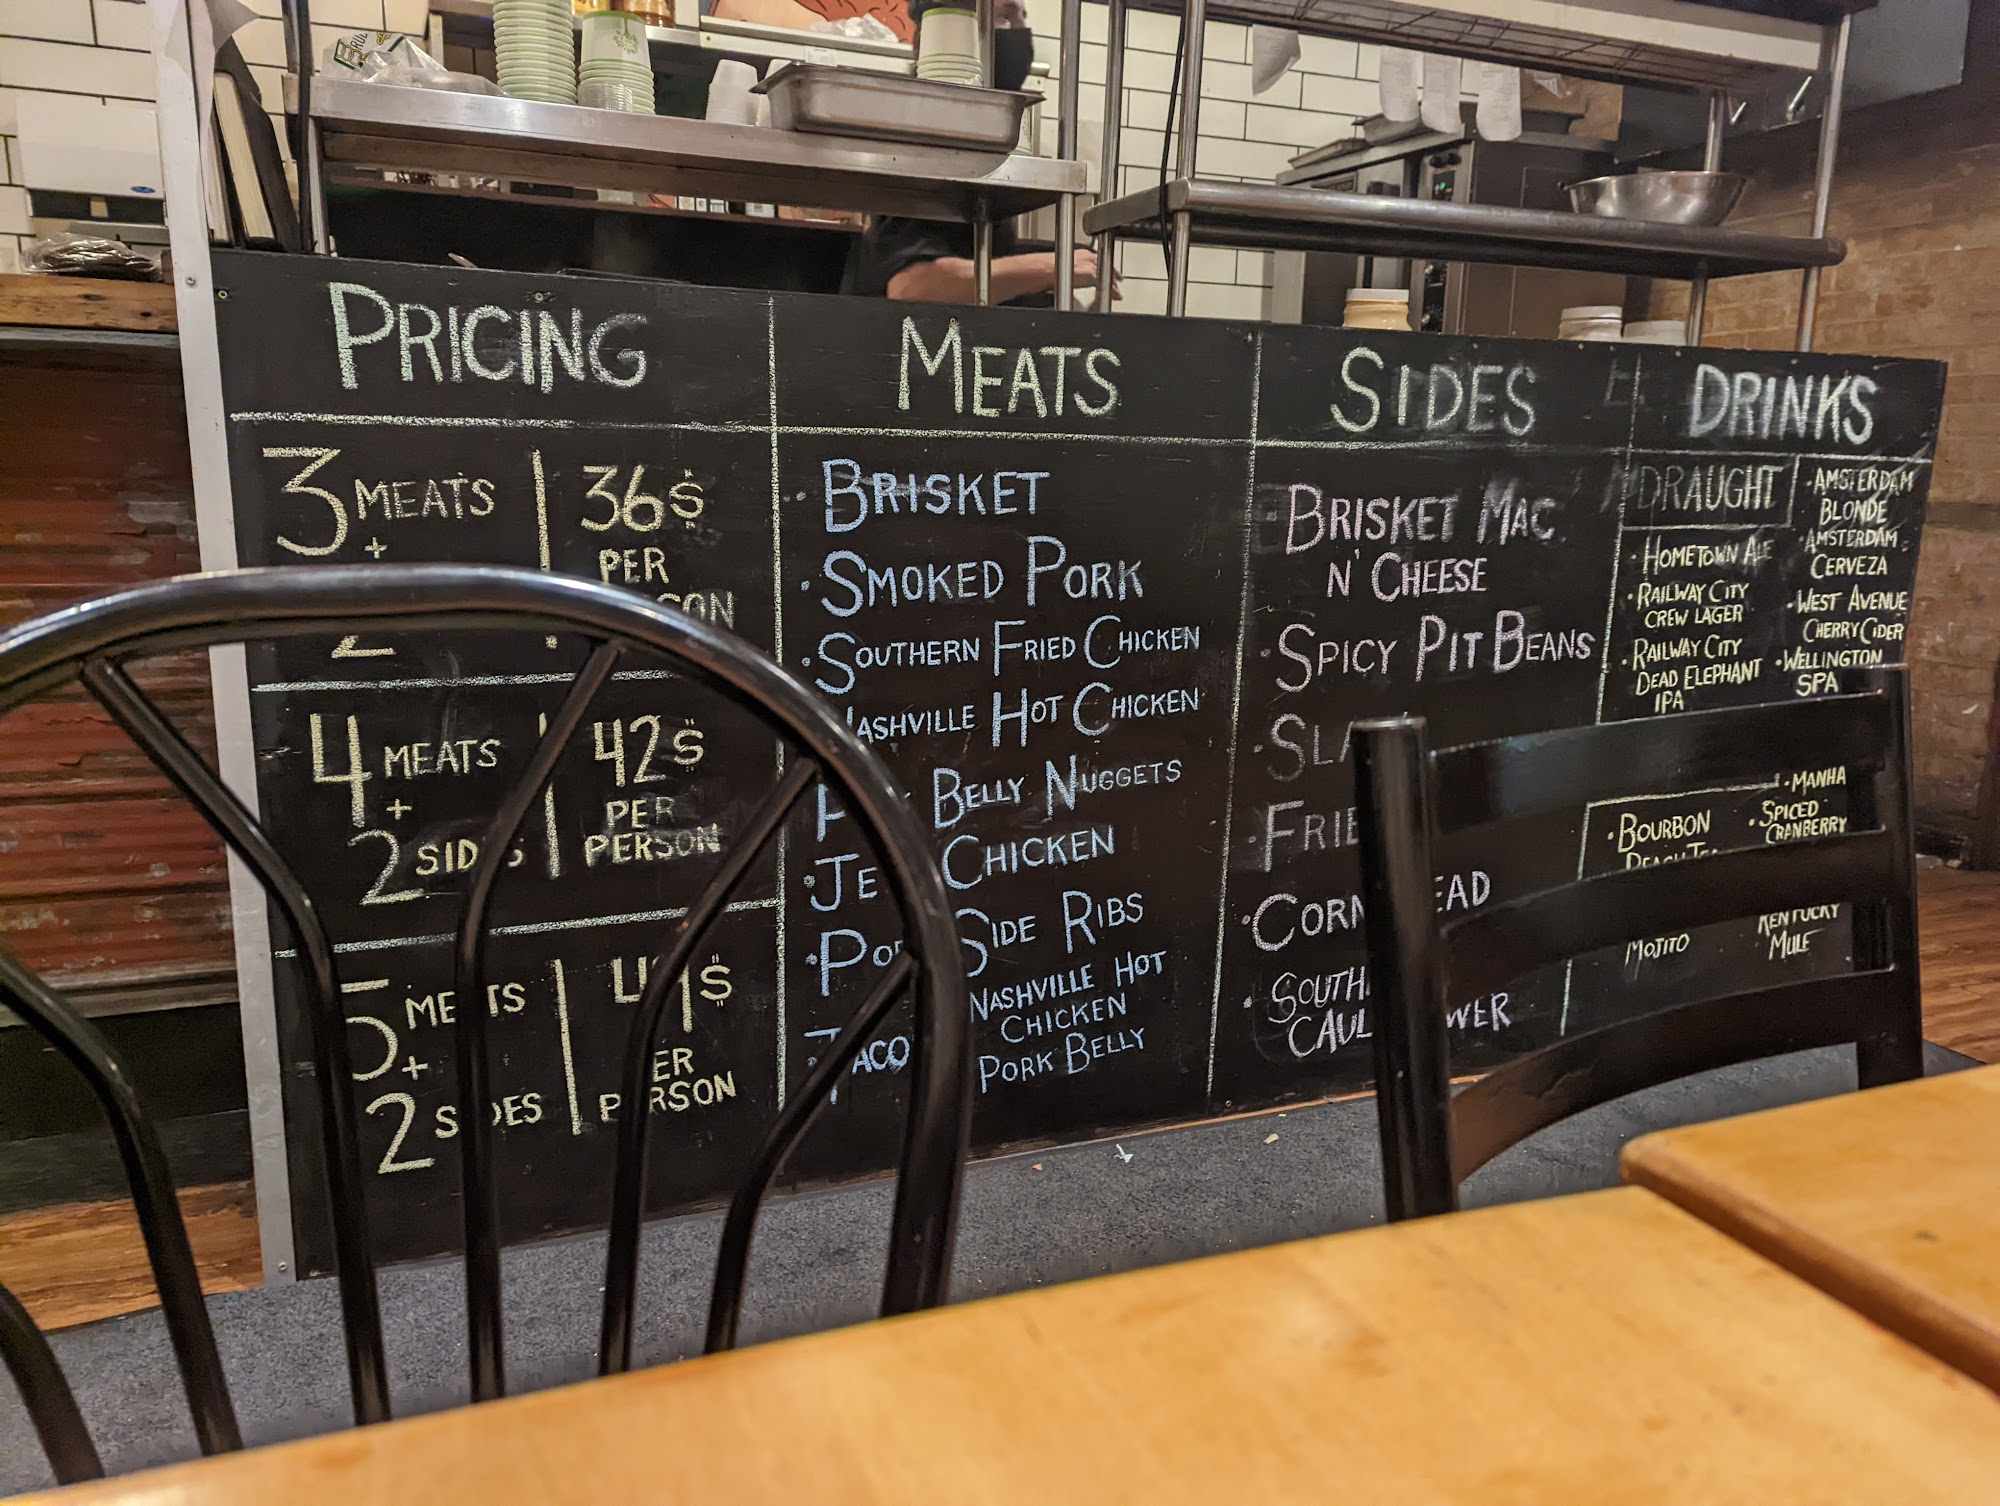 PRICING
3 MEATS
+
2
36$
PER
4 MEATS
+
2 SIDES
42$
PER
PERSON
5 MEATS
+
2 SIDES
PER
PERSON
MEATS
· BRISKET
· SMOKED PORK
· SOUTHERN FRIED CHICKEN
NASHVILLE HOT CHICKEN
BELLY NUGGETS
CHICKEN
SIDE RIBS
NASHVILLE HOT
CHICKEN
PORK BELLY
SIDES
· BRISKET MAC
N' CHEESE
· SPICY PIT BEANS
DRINKS
DRAUGHT
· HOMETOWN ALE
· RAILWAY CITY
CREW LAGER
· RAILWAY CITY
DEAD ELEPHANT
IPA
· AMSTERDAM
BLONDE
· AMSTERDAM
CERVEZA
· WEST AVENUE
CHERRY CIDER
· WELLINGTON
SPA
· BOURBON
MOJITO
· MANHA
· SPICED
CRANBERRY
KENTUCKY
MULE